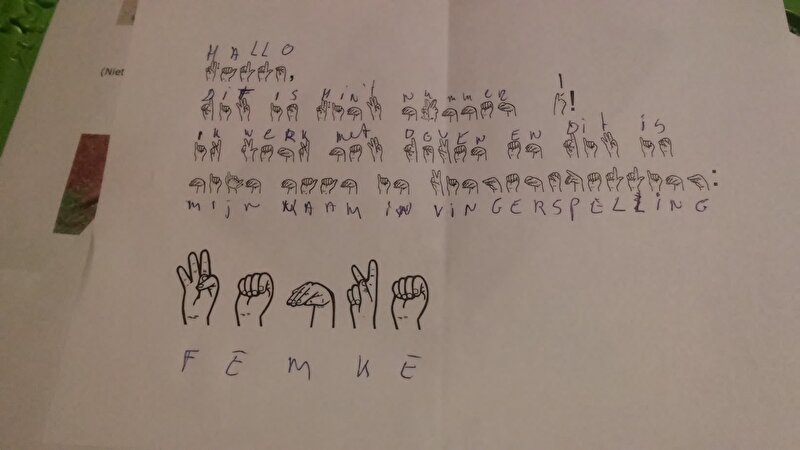 HALLO
,
Dit is Hint nummer 1
!
ik werk met DOVEN EN Dit is
:
mijn NAAM iN ViNGERSPELLiNG
FEMKE
(Niet